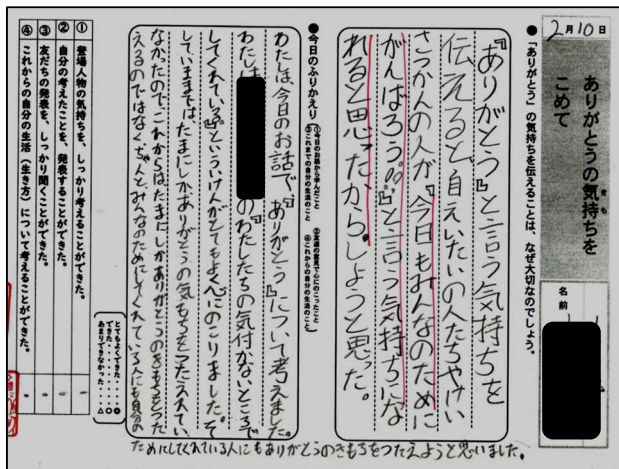 2月10日
ありがとうの気持ちを
こめて
名前
●「ありがとう」の気持ちを伝えることは、なぜ大切なのでしょう。
『ありがとう』と言う気持ちを
伝えると自えいたいの人たちやけい
さつかんの人が『今日もみんなのために
がんばろう。』と言う気持ちにな
れると思ったから。しようと思った。
●今日のふりかえり
①今日のお話から学んだこと ②友達の意見で心にのこったこと
③これまでの自分の生活のこと ④これからの自分の生活のこと
わたしは、今日のお話で『ありがとう』について考えました。
わたしは の『わたしたちの気付かないところで
してくれている。』といういけんがとてもよく心にのこりました。そ
していままでは、たまにしかありがとうの気もちをつたえれてい
なかったので、これからは、たまにしかありがとうのきもちをつた
えるのではなく、ちゃんとみんなのためにしてくれている人にも自分の
ためにしてくれている人にもありがとうのきもちをつたえようと思いました。
とてもよくできた・・・◎
できた・・・・・○
あまりできなかった・・△
① 登場人物の気持ちを、しっかり考えることができた。
② 自分の考えたことを、発表することができた。
③ 友だちの発表を、しっかり聞くことができた。
④ これからの自分の生活(生き方)について考えることができた。